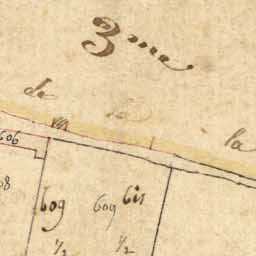 3me
de
la
606
609
609 bis
1/2
1/2